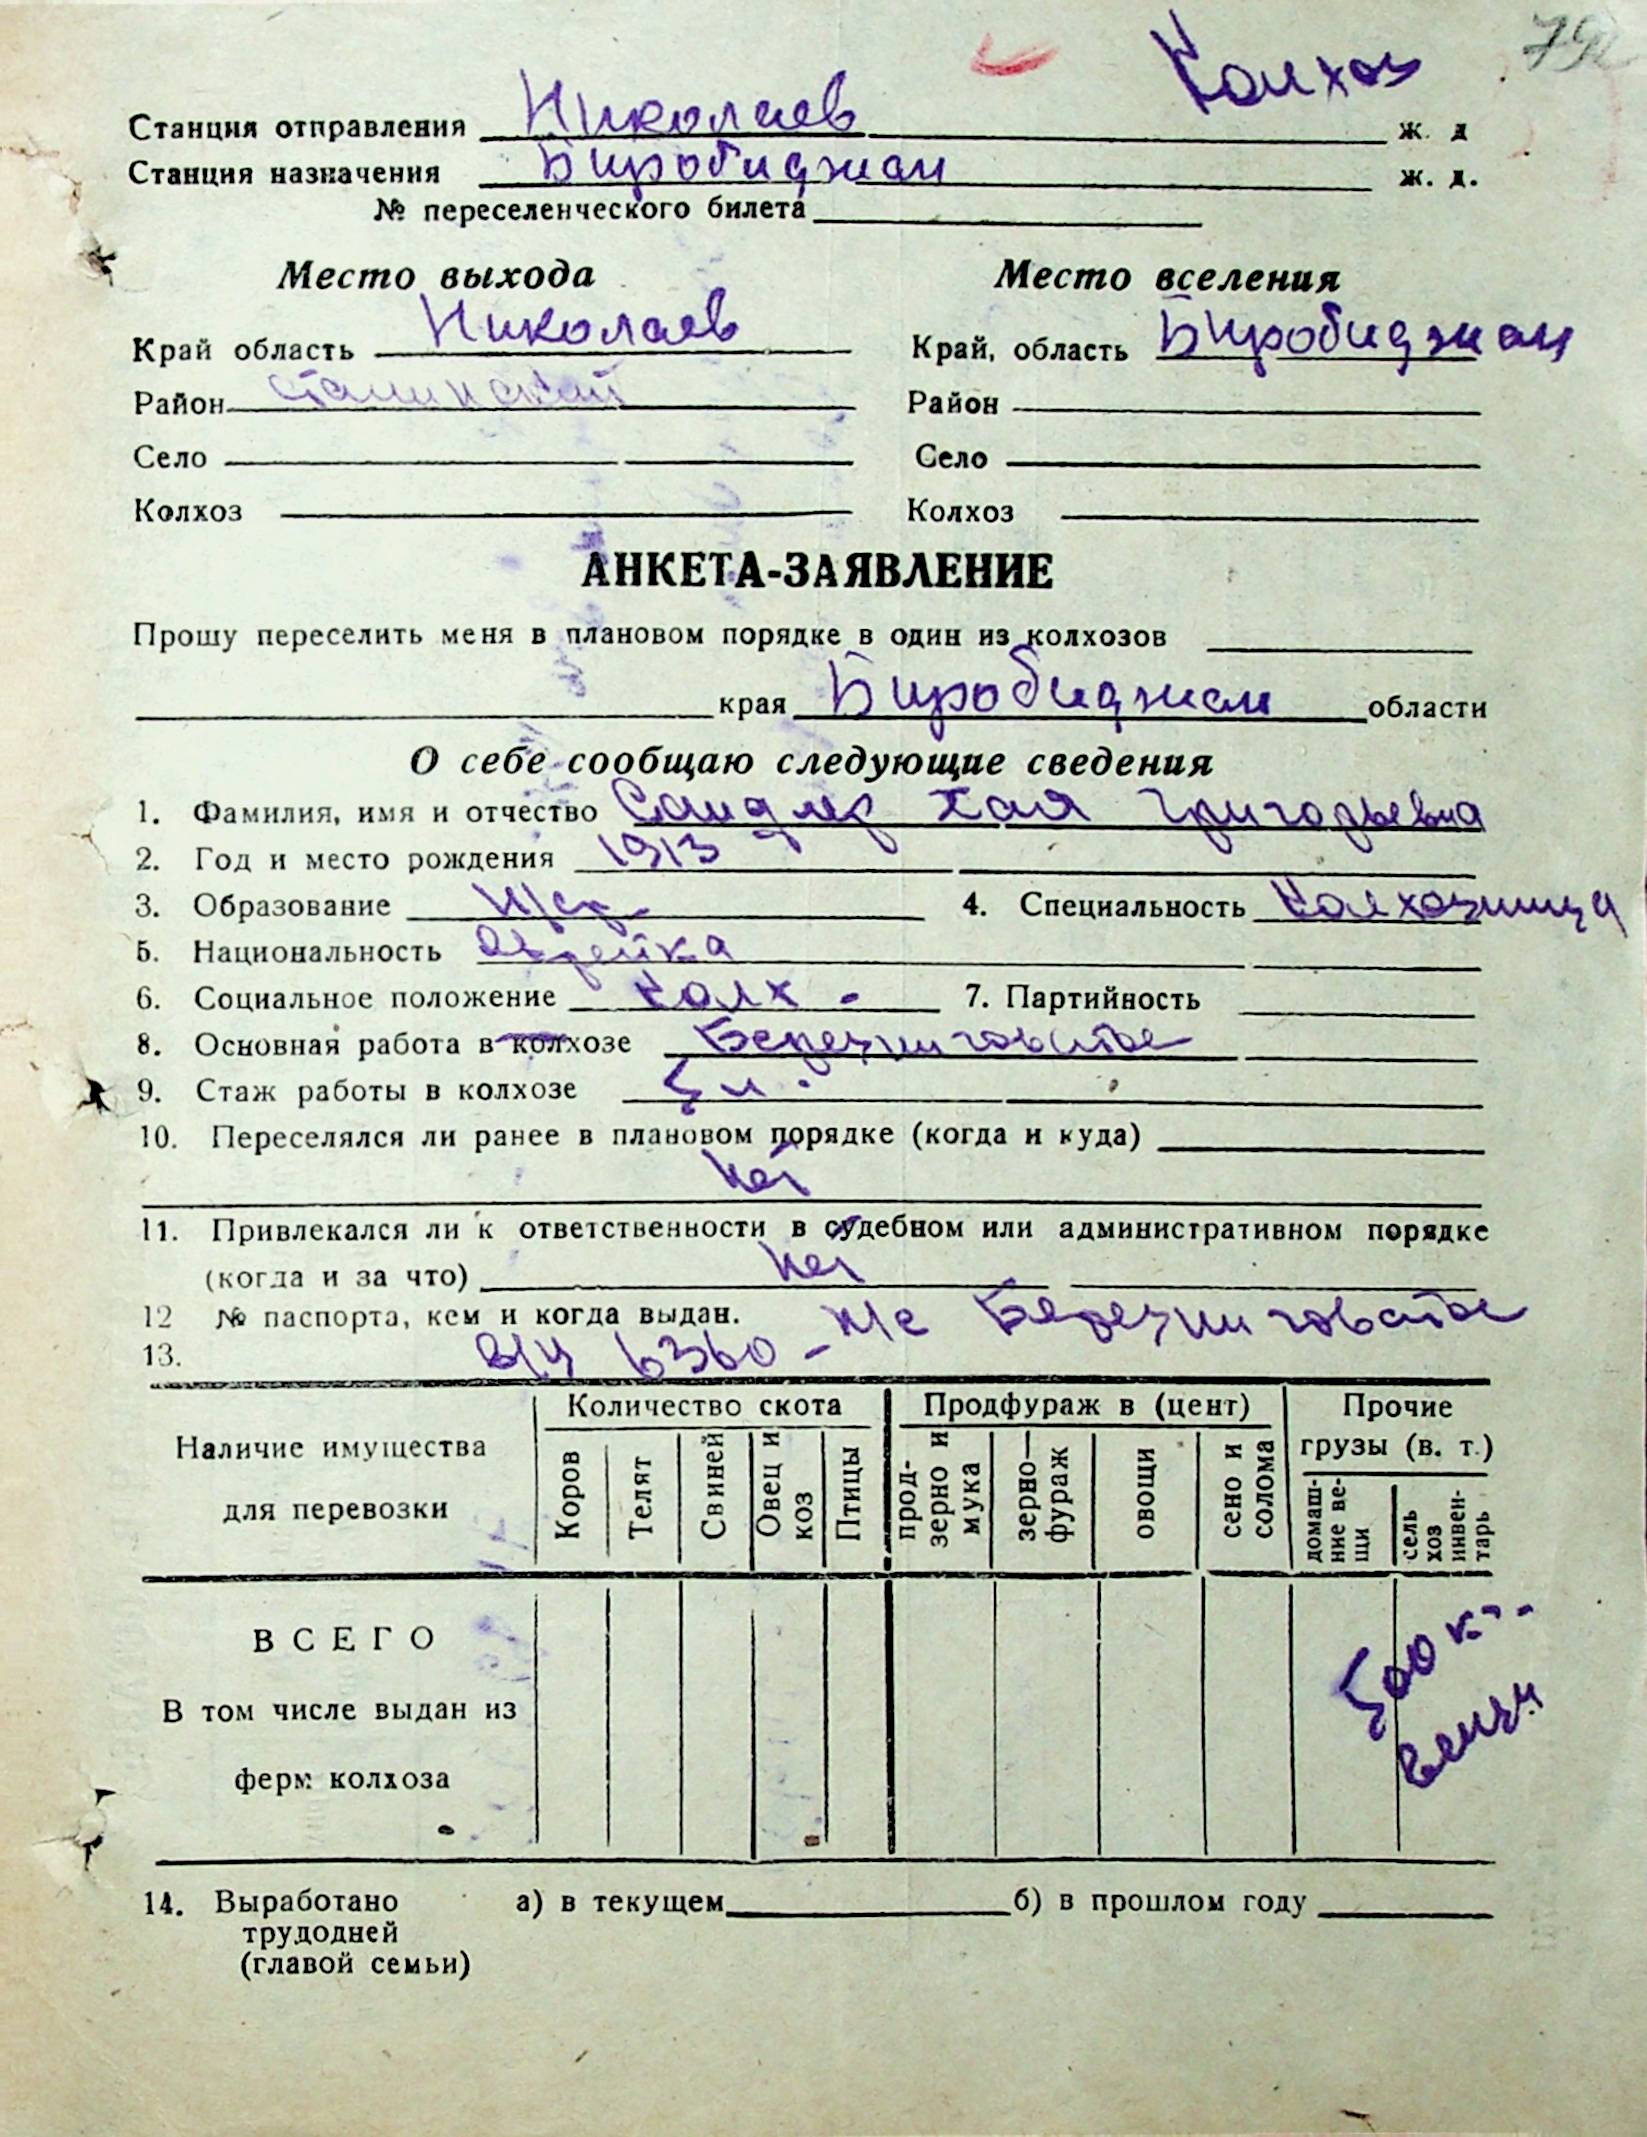 Колхоз
79
Станция отправления Николаев ж. д
Станция назначения Биробиджан ж. д.
№ переселенческого билета
Место выхода
Место вселения
Край область Николаев
Край, область Биробиджан
Район Сталинский
Район
Село
Село
Колхоз
Колхоз
АНКЕТА-ЗАЯВЛЕНИЕ
Прошу переселить меня в плановом порядке в один из колхозов
края Биробиджан области
О себе сообщаю следующие сведения
1. Фамилия, имя и отчество Сандлер Хая Григорьевна
2. Год и место рождения 1913
3. Образование н/ср. 4. Специальность Колхозница
5. Национальность еврейка
6. Социальное положение колх. 7. Партийность
8. Основная работа в колхозе Березниговатое
9. Стаж работы в колхозе 5 л.
10. Переселялся ли ранее в плановом порядке (когда и куда)
нет
11. Привлекался ли к ответственности в судебном или административном порядке
(когда и за что) нет
12 № паспорта, кем и когда выдан. н/с Березниговатое
13. 6360 -
Наличие имущества для перевозки
Количество скота
Продфураж в (цент)
Прочие грузы (в. т.)
Коров
Телят
Свиней
Овец и коз
Птицы
прод-зерно и мука
зерно—фураж
овощи
сено и солома
домаш-ние ве-щи
сель хоз инвен-тарь
ВСЕГО
В том числе выдан из
ферм колхоза
500 к.
вещи
14. Выработано а) в текущем б) в прошлом году
трудодней
(главой семьи)